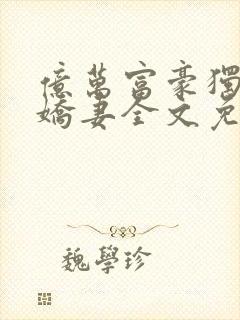 億萬富豪獨
嬌妻全文免
魏學珍